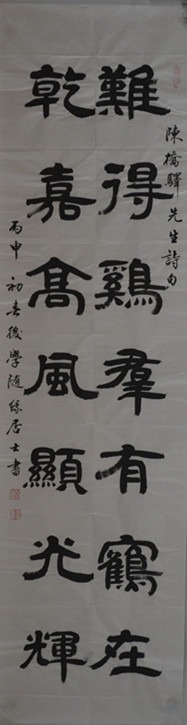 難得鷄羣有鶴在
乾嘉高風顯光輝
陳橋驛先生詩句
丙申初春後學隨緣居士書